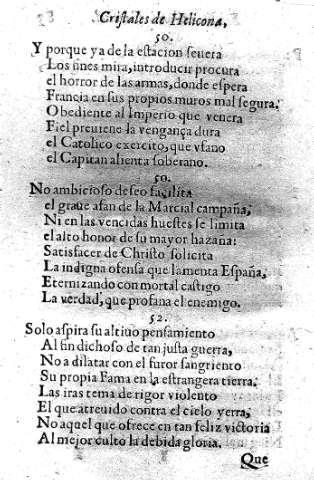 Cristales de Helicona,
50.
Y porque ya de la estacion seuera
Los fines mira, introducir procura
el horror de las armas, donde espera
Francia en sus propios muros mal segura.
Obediente al Imperio que venera
Fiel preuiene la vengança dura
el Catolico exercito, que vfano
el Capitan alienta soberano.
50.
No ambicioso deseo facilita
el graue afan de la Marcial campaña,
Ni en las vencidas huestes se limita
el alto honor de su mayor hazaña:
Satisfacer de Christo solicita
La indigna ofensa que lamenta España,
Eternizando con mortal castigo
La verdad, que profana el enemigo.
52.
Solo aspira su altiuo pensamiento
Al fin dichoso de tan justa guerra,
No a dilatar con el furor sangriento
Su propia Fama en la estrangera tierra.
Las iras tema de rigor violento
El que atreuido contra el cielo yerra,
No aquel que ofrece en tan feliz victoria
Al mejor culto la debida gloria.
Que